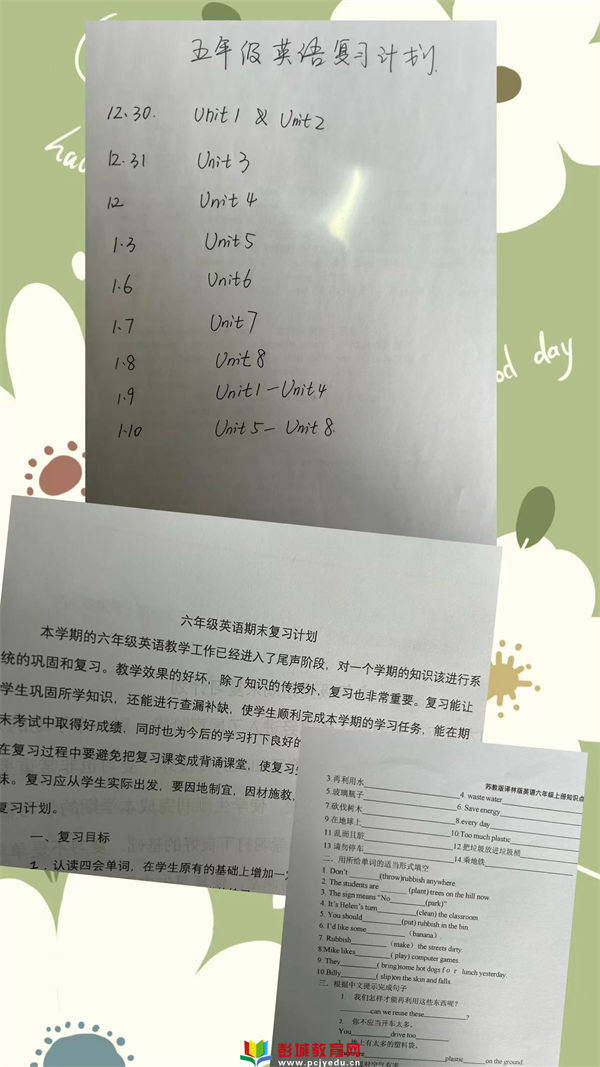 五年级英语复习计划
12.30. Unit1 & Unit2
12.31 Unit3
12 Unit4
1.3 Unit5
1.6 Unit6
1.7 Unit7
1.8 Unit8
1.9 Unit1-Unit4
1.10 Unit5-Unit8.
day
六年级英语期末复习计划
本学期的六年级英语教学工作已经进入了尾声阶段，对一个学期的知识该进行系
统的巩固和复习。教学效果的好坏，除了知识的传授外，复习也非常重要。复习能让
学生巩固所学知识，还能进行查漏补缺，使学生顺利完成本学期的学习任务，能在期
末考试中取得好成绩，同时也为今后的学习打下良好的
在复习过程中要避免把复习课变成背诵课堂，使复习
味。复习应从学生实际出发，要因地制宜，因材施教，
复习计划。
一、复习目标
1、认读四会单词，在学生原有的基础上增加一
苏教版译林版英语六年级上册知识点
3.再利用水 4. waste water
5.玻璃瓶子 6. Save energy
7.砍伐树木 8.every day
9.在地球上 10.Too much plastic
11.乱而且脏 12.把垃圾放进垃圾桶
13 请勿停车 14.乘地铁
二、用所给单词的适当形式填空
1. Don't (throw)rubbish anywhere.
2. The students are (plant) trees on the hill now.
3. The sign means "No (park)"
4. It's Helen's turn (clean) the classroom.
5. You should (put) rubbish in the bin.
6. I'd like some (banana).
7. Rubbish (make) the streets dirty.
8.Mike likes ( play) computer games.
9. They ( bring)some hot dogs for lunch yesterday.
10.Billy ( slip)on the skin and falls.
三、根据中文提示完成句子
1. 我们怎样才能再利用这些东西呢?
can we reuse these ?
2. 你不应当开车太多。
You drive too
3. 地上有太多的塑料袋。
plastic on the ground.
彭城教育网
www.pcjyedu.cn